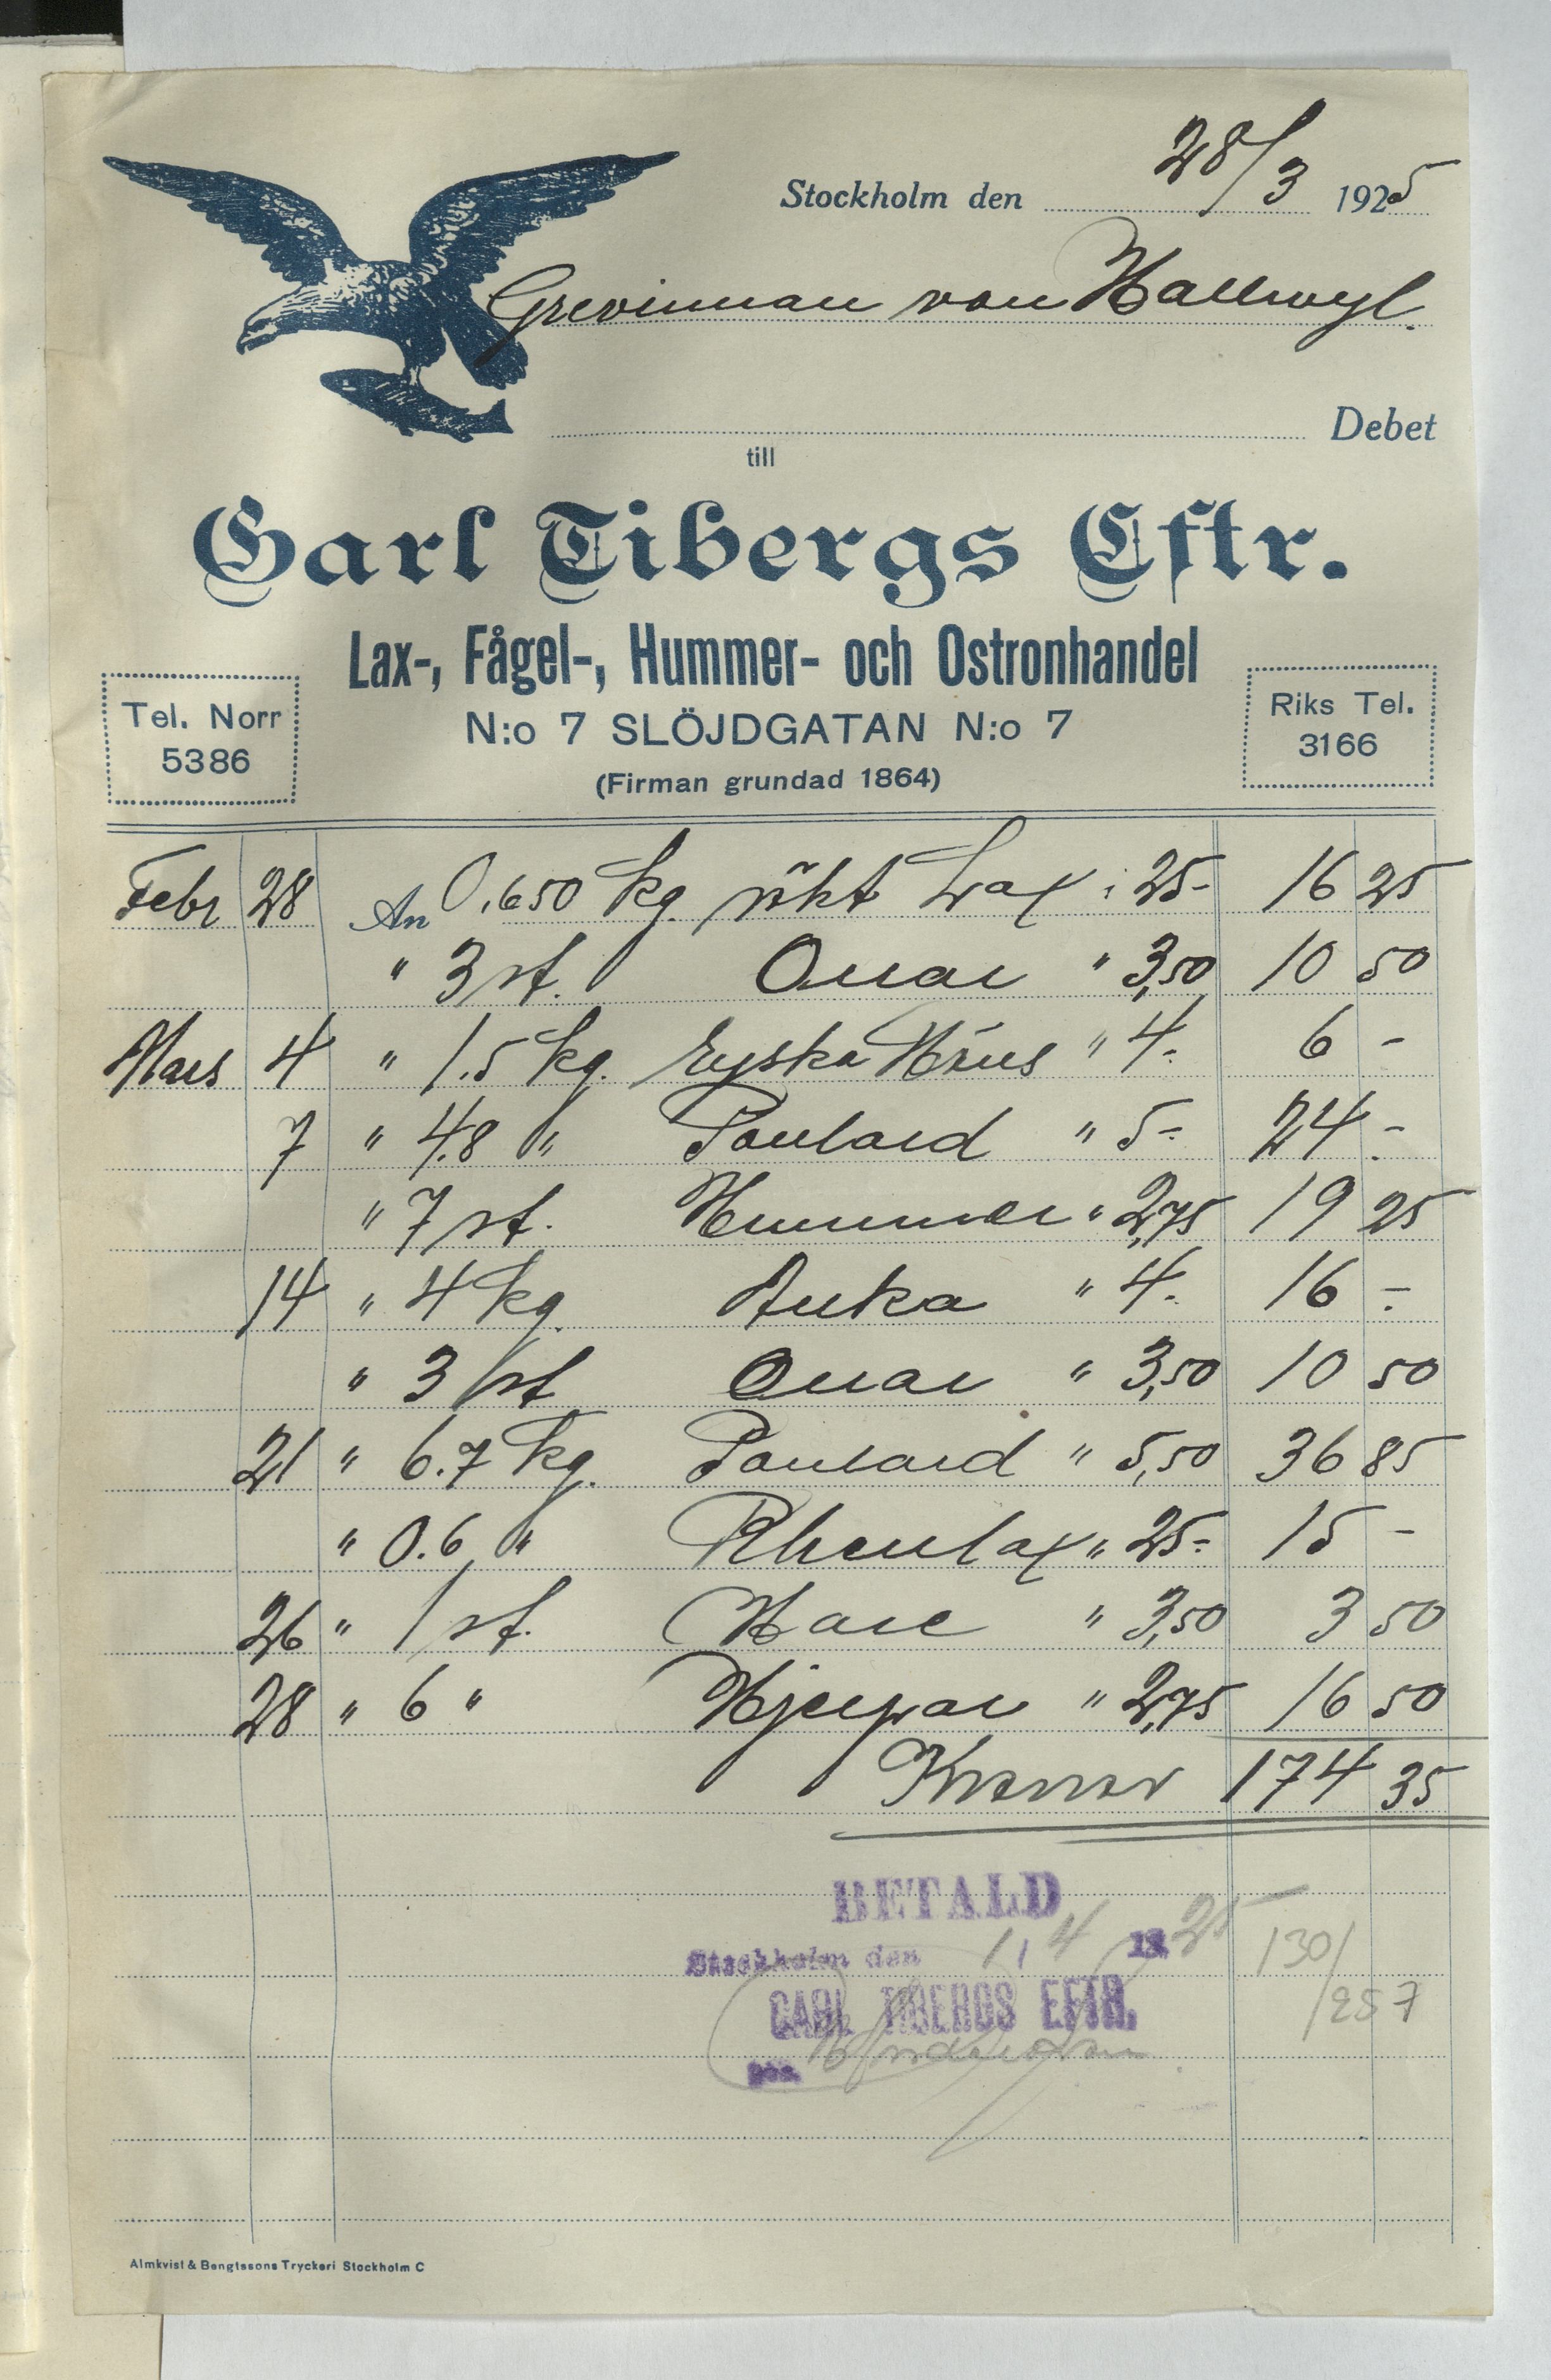 Stockholm den 28/3 1925
Grevinnan von Hallwyl.
Debet
till
Carl Tibergs Eftr.
Lax-, Fågel-, Hummer- och Ostronhandel
Tel. Norr
5386
N:o 7 SLÖJDGATAN N:o 7
Riks Tel.
3166
(Firman grundad 1864)
Febr 28 An 0,650 kg. rökt Lax : 25- 16 25
" 3 st. Orrar " 3,50 10 50
Mars 4 " 1.5 kg. Ryska Höns " 4- 6 -
7 " 4.8 " Poulard " 5- 24 -
" 7 st. Hummer " 2,75 19 25
14 " 4 kg. Anka " 4- 16 -
" 3 st Orrar " 3,50 10 50
21 " 6.7 kg. Poulard " 5,50 36 85
" 0.6 " Rhenlax " 25- 15 -
26 " 1 st. Hare " 3,50 3 50
28 " 6 " Hjerpar " 2,75 16 50
Kronor 174 35
BETALD
Stockholm den 1/4 1925
130/
/257
CARL TIBERGS EFTR.
Almkvist & Bengtssons Tryckeri Stockholm C